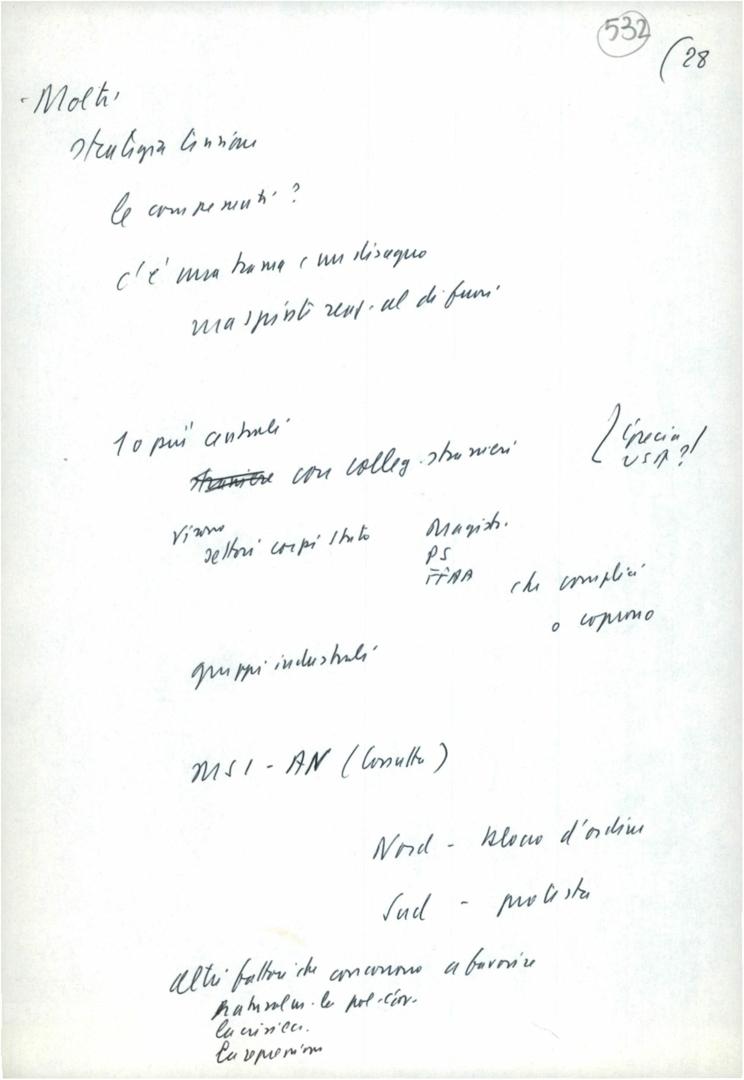 532
(28
- Molti
strategia tensione
le componenti?
c'è una trama e un disegno
ma spinti reaz. al di fuori
1 o più centrali
straniere con colleg. stranieri
(Grecia
USA?)
settori corpi Stato
Magistr.
PS
FFAA
che complici
o coprono
gruppi industriali
MSI - AN (Consulta)
Nord - blocco d'ordine
Sud - protesta
altri fattori che concorrono a favorire
naturalm. le pol.
la crisi ec.
la repressione